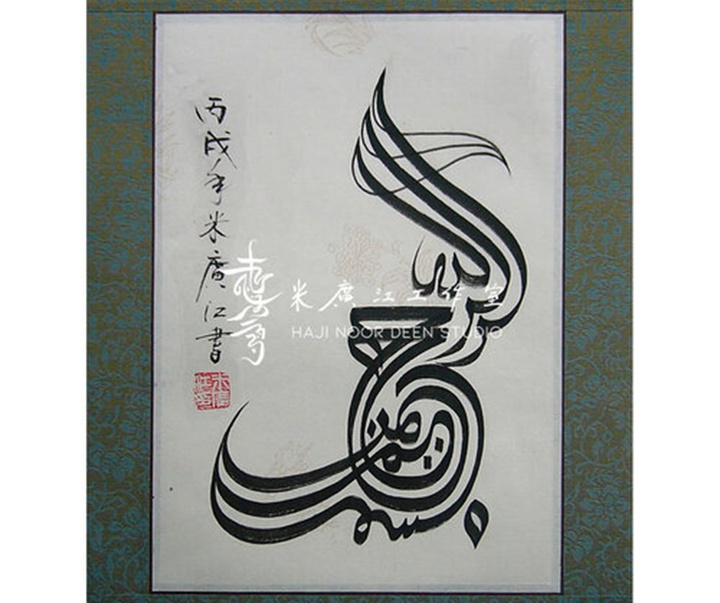 丙戌年米廣江書
米廣江工作室
HAJI NOOR DEEN STUDIO
بسم الله الرحمن الرحيم